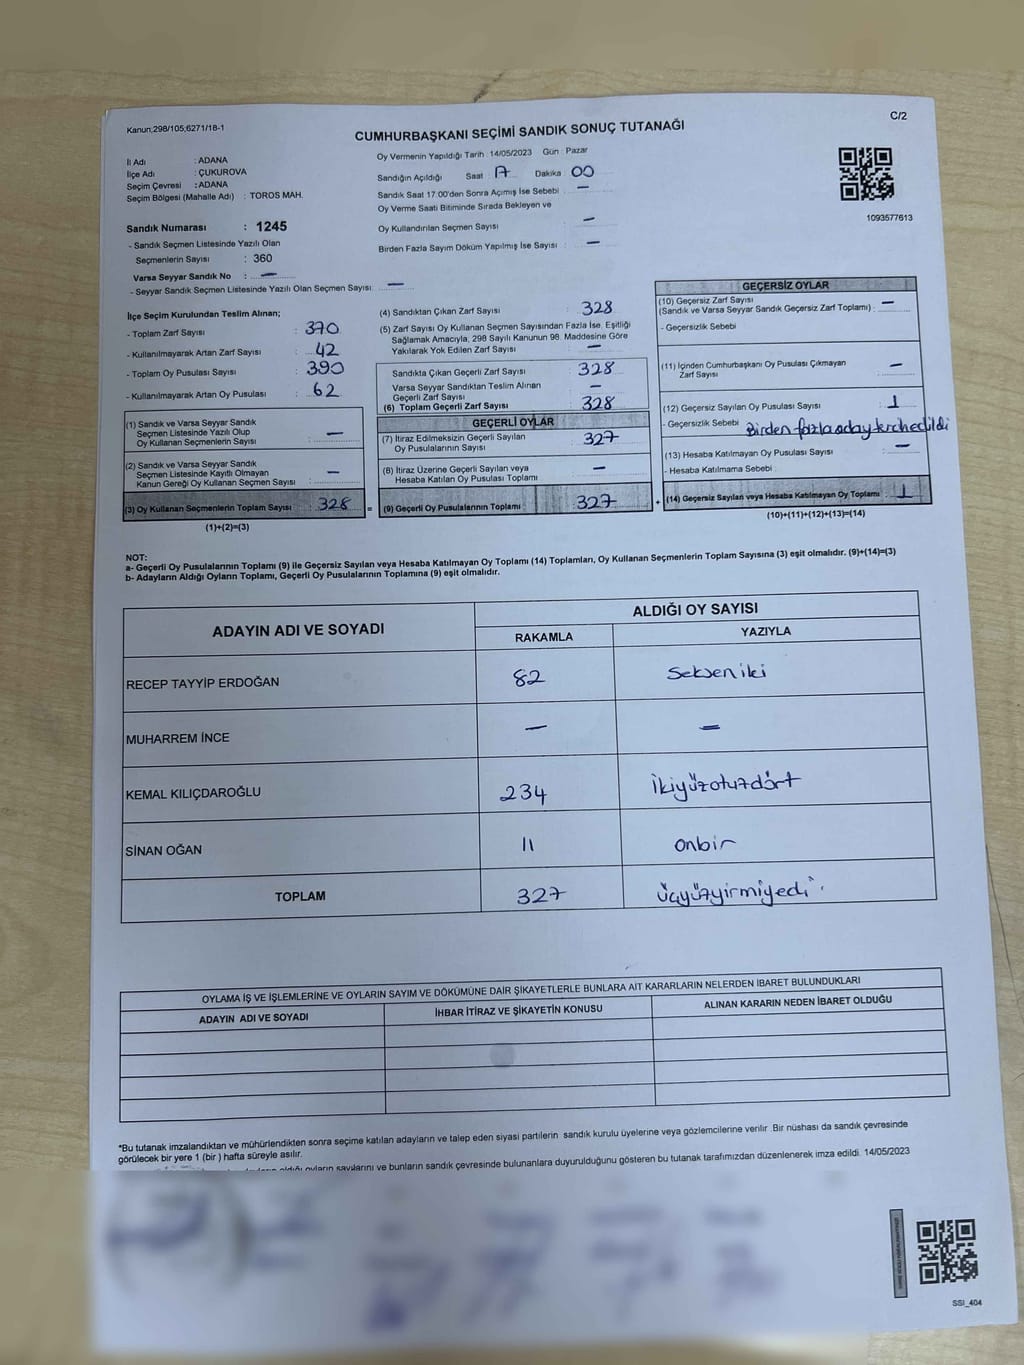 Kanun;298/105;6271/18-1
C/2
CUMHURBAŞKANI SEÇİMİ SANDIK SONUÇ TUTANAĞI
İl Adı : ADANA
İlçe Adı : ÇUKUROVA
Seçim Çevresi : ADANA
Seçim Bölgesi (Mahalle Adı) : TOROS MAH.
Oy Vermenin Yapıldığı Tarih : 14/05/2023 Gün : Pazar
Sandığın Açıldığı Saat 17 Dakika : 00
Sandık Saat 17:00'den Sonra Açımış İse Sebebi : —
Oy Verme Saati Bitiminde Sırada Bekleyen ve
Oy Kullandırılan Seçmen Sayısı : —
Birden Fazla Sayım Döküm Yapılmış İse Sayısı : —
1093577613
Sandık Numarası : 1245
- Sandık Seçmen Listesinde Yazılı Olan
Seçmenlerin Sayısı : 360
Varsa Seyyar Sandık No : —
- Seyyar Sandık Seçmen Listesinde Yazılı Olan Seçmen Sayısı: —
İlçe Seçim Kurulundan Teslim Alınan;
- Toplam Zarf Sayısı : 370
- Kullanılmayarak Artan Zarf Sayısı : 42
- Toplam Oy Pusulası Sayısı : 390
- Kullanılmayarak Artan Oy Pusulası : 62
(1) Sandık ve Varsa Seyyar Sandık
Seçmen Listesinde Yazılı Olup
Oy Kullananların Sayısı : —
(2) Sandık ve Varsa Seyyar Sandık
Seçmen Listesinde Kayıtlı Olmayan
Kanun Gereği Oy Kullanan Seçmen Sayısı : —
(3) Oy Kullanan Seçmenlerin Toplam Sayısı : 328
(1)+(2)=(3)
(4) Sandıktan Çıkan Zarf Sayısı : 328
(5) Zarf Sayısı Oy Kullanan Seçmen Sayısından Fazla İse, Eşitliği
Sağlamak Amacıyla, 298 Sayılı Kanunun 98. Maddesine Göre
Yakılarak Yok Edilen Zarf Sayısı : —
Sandıkta Çıkan Geçerli Zarf Sayısı : 328
Varsa Seyyar Sandıktan Teslim Alınan
Geçerli Zarf Sayısı : —
(6) Toplam Geçerli Zarf Sayısı : 328
GEÇERLİ OYLAR
(7) İtiraz Edilmeksizin Geçerli Sayılan
Oy Pusulalarının Sayısı : 327
(8) İtiraz Üzerine Geçerli Sayılan veya
Hesaba Katılan Oy Pusulası Toplamı : —
= (9) Geçerli Oy Pusulalarının Toplamı : 327 +
GEÇERSİZ OYLAR
(10) Geçersiz Zarf Sayısı
(Sandık ve Varsa Seyyar Sandık Geçersiz Zarf Toplamı) : —
- Geçersizlik Sebebi
(11) İçinden Cumhurbaşkanı Oy Pusulası Çıkmayan
Zarf Sayısı : —
(12) Geçersiz Sayılan Oy Pusulası Sayısı : 1
- Geçersizlik Sebebi Birden fazla aday tercih edildi
(13) Hesaba Katılmayan Oy Pusulası Sayısı : —
- Hesaba Katılmama Sebebi :
(14) Geçersiz Sayılan veya Hesaba Katılmayan Oy Toplamı : 1
(10)+(11)+(12)+(13)=(14)
NOT:
a- Geçerli Oy Pusulalarının Toplamı (9) ile Geçersiz Sayılan veya Hesaba Katılmayan Oy Toplamı (14) Toplamları, Oy Kullanan Seçmenlerin Toplam Sayısına (3) eşit olmalıdır. (9)+(14)=(3)
b- Adayların Aldığı Oyların Toplamı, Geçerli Oy Pusulalarının Toplamına (9) eşit olmalıdır.
ADAYIN ADI VE SOYADI
ALDIĞI OY SAYISI
RAKAMLA YAZIYLA
RECEP TAYYİP ERDOĞAN 82 Sekseniki
MUHARREM İNCE — —
KEMAL KILIÇDAROĞLU 234 İkiyüzotuzdört
SİNAN OĞAN 11 onbir
TOPLAM 327 üçyüzyirmiyedi
OYLAMA İŞ VE İŞLEMLERİNE VE OYLARIN SAYIM VE DÖKÜMÜNE DAİR ŞİKAYETLERLE BUNLARA AİT KARARLARIN NELERDEN İBARET BULUNDUKLARI
ADAYIN ADI VE SOYADI İHBAR İTİRAZ VE ŞİKAYETİN KONUSU ALINAN KARARIN NEDEN İBARET OLDUĞU
*Bu tutanak imzalandıktan ve mühürlendikten sonra seçime katılan adayların ve talep eden siyasi partilerin sandık kurulu üyelerine veya gözlemcilerine verilir .Bir nüshası da sandık çevresinde
görülecek bir yere 1 (bir ) hafta süreyle asılır.
aldığı oyların sayılarını ve bunların sandık çevresinde bulunanlara duyurulduğunu gösteren bu tutanak tarafımızdan düzenlenerek imza edildi. 14/05/2023
SSI_404